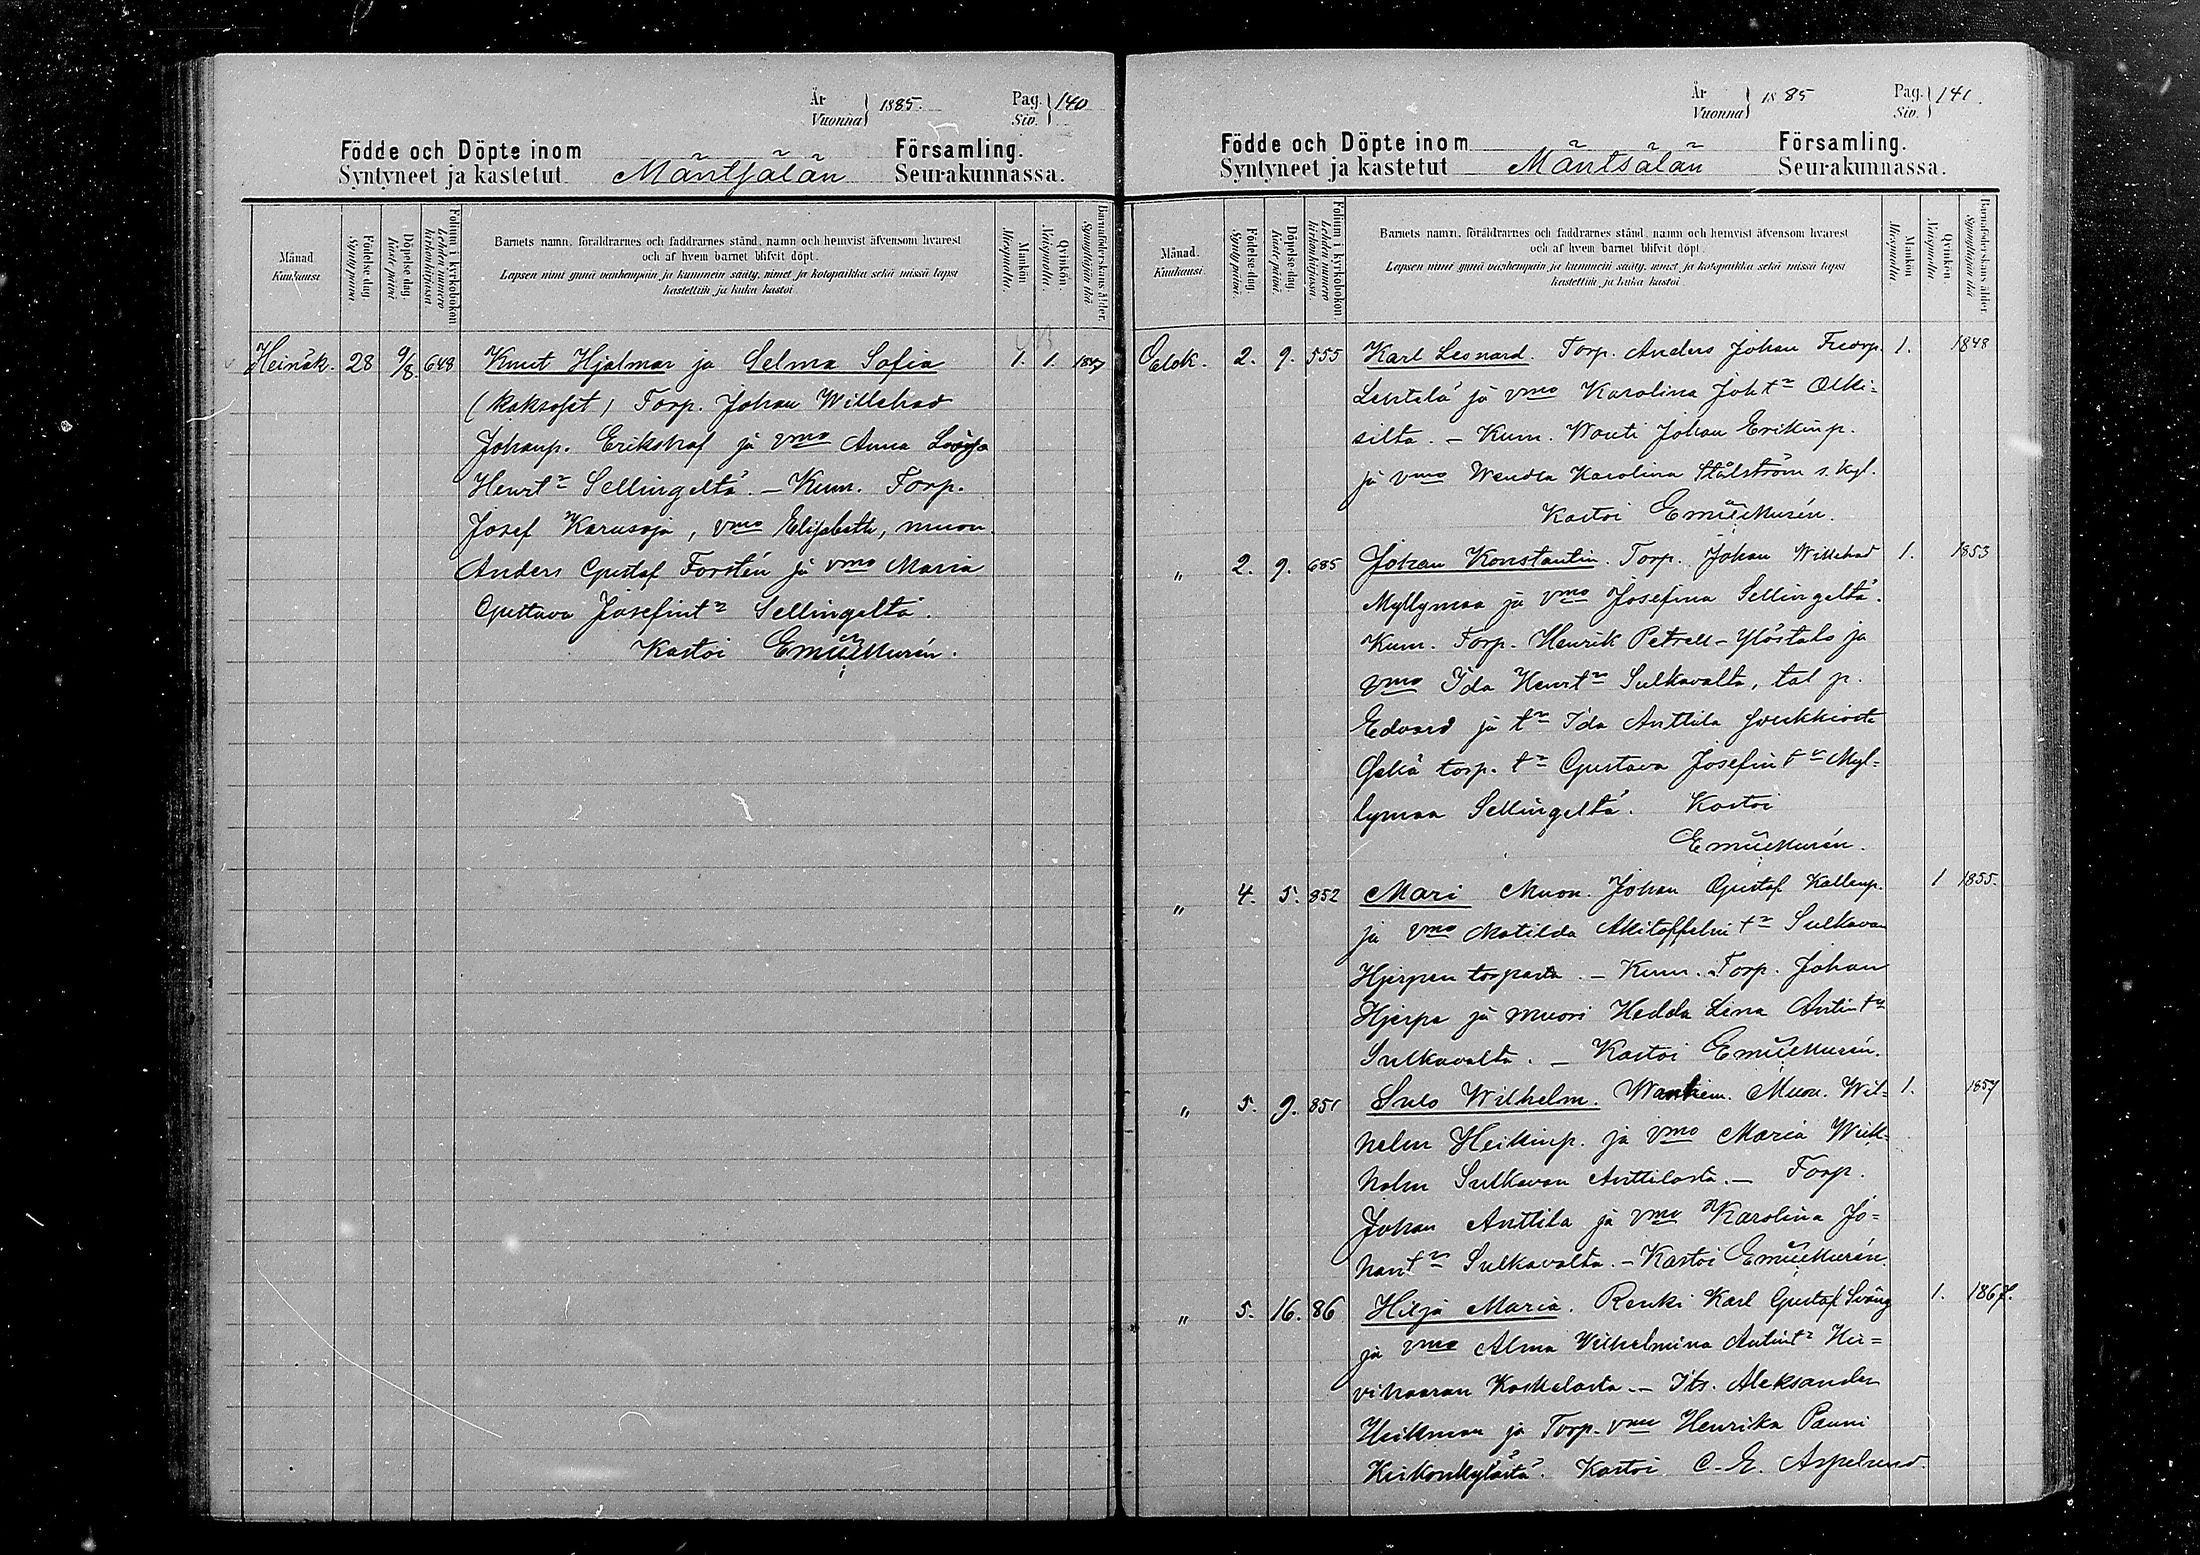 År
Vuonna } 1885. Pag. Siv. } 140
Födde och Döpte inom Församling.
Syntyneet ja kastetut Mäntsälän Seurakunnassa.
Månad. Kuukausi.
Födelse-dag. Syntymäpäivä.
Döpelse-dag. Kaste päivä.
Folium i kyrkoboken. Lehden numero kirkonkirjassa.
Barnets namn, föräldrarnes och faddrarnes stånd, namn och hemvist äfvensom hvarest
och af hvem barnet blifvit döpt.
Lapsen nimi ynnä vanhempain ja kummein sääty, nimet ja kotopaikka sekä missä lapsi
kastettiin ja kuka kastoi
Mankön. Miespuolta.
Qvinkön. Vaispuolta.
Barnaföderskans ålder. Synnyttäjän ikä
Heinäk. 28 9/8. 648 Knut Hjalmar ja Selma Sofia 1. 1. 1847
(kaksoset) Torp. Johan Willehad
Johanp. Erikshof ja vmo Anna
Henrtr Sellingeltä. – Kum. Torp.
Josef Karusoja, vmo Elisabeth, muon.
Anders Gustaf Forstén ja vmo Maria
Gustava Josefintr Sellingeltä.
Kastoi Emil Murén.
År
Vuonna } 1885 Pag. Siv. } 141.
Födde och Döpte inom Församling.
Syntyneet ja kastetut Mäntsälän Seurakunnassa.
Månad. Kuukausi.
Födelse-dag. Synty päivä.
Döpelse-dag. Kaste päivä.
Folium i kyrkoboken. Lehden numero kirkonkirjassa.
Barnets namn, föräldrarnes och faddrarnes stånd, namn och hemvist äfvensom hvarest
och af hvem barnet blifvit döpt.
Lapsen nimi ynnä vanhempain ja kummein sääty, nimet ja kotopaikka sekä missä lapsi
kastettiin ja kuka kastoi
Mankön. Miespuolta.
Qvinkön. Vaispuolta.
Barnaföderskans ålder. Synnyttäjän ikä
Elok. 2. 9. 555 Karl Leonard. Torp. Anders Johan 1. 1848
ja vmo Karolina Joh tr Olki=
silta. – Kum. Wouti Johan Erikinp.
ja vmo Wendla Karolina Stålström s. kyl.
Kastoi Emil Murén.
" 2. 9. 685 Johan Konstantin. Torp. Johan Willehad 1. 1853
Myllymaa ja vmo Josefina Sellingeltä.
Kum. Torp. Henrik Petrell-Ylöstalo ja
vmo Ida Henrtr Sulkavalta, tal p.
Edvard ja tr Ida Anttila
sekä torp. tr Gustava Josefin tr Myl=
lymaa Sellingeltä. Kastoi
Emil Murén.
" 4. 5. 852 Mari Muon. Johan Gustaf Kallenp. 1 1855.
ja vmo Matilda tr Sulkavan
Hjerpen torpasta. – Kum. Torp. Johan
Hjerpe ja muori Hedda Lena Antin tr
Sulkavalta. – Kastoi Emil Murén.
" 5. 9. 851 Sulo Wilhelm. Muon. Wil= 1. 1857
helm Heikinp. ja vmo Maria Wil=
helm Sulkavan Anttilasta. – Torp.
Johan Anttila ja vmo Karolina Jo=
han tr Sulkavalta. – Kastoi Emil Murén.
" 5. 16. 86 Hilja Maria. Renki Karl Gustaf Sväng 1. 1867.
ja vmo Alma Vilhelmina Antintr Hir=
vihaaran Koskelasta. – Its. Aleksander
Heikman ja Torp. vmo Henrika Pauni
Kirkonkylästä. Kastoi C. E. Aspelund.